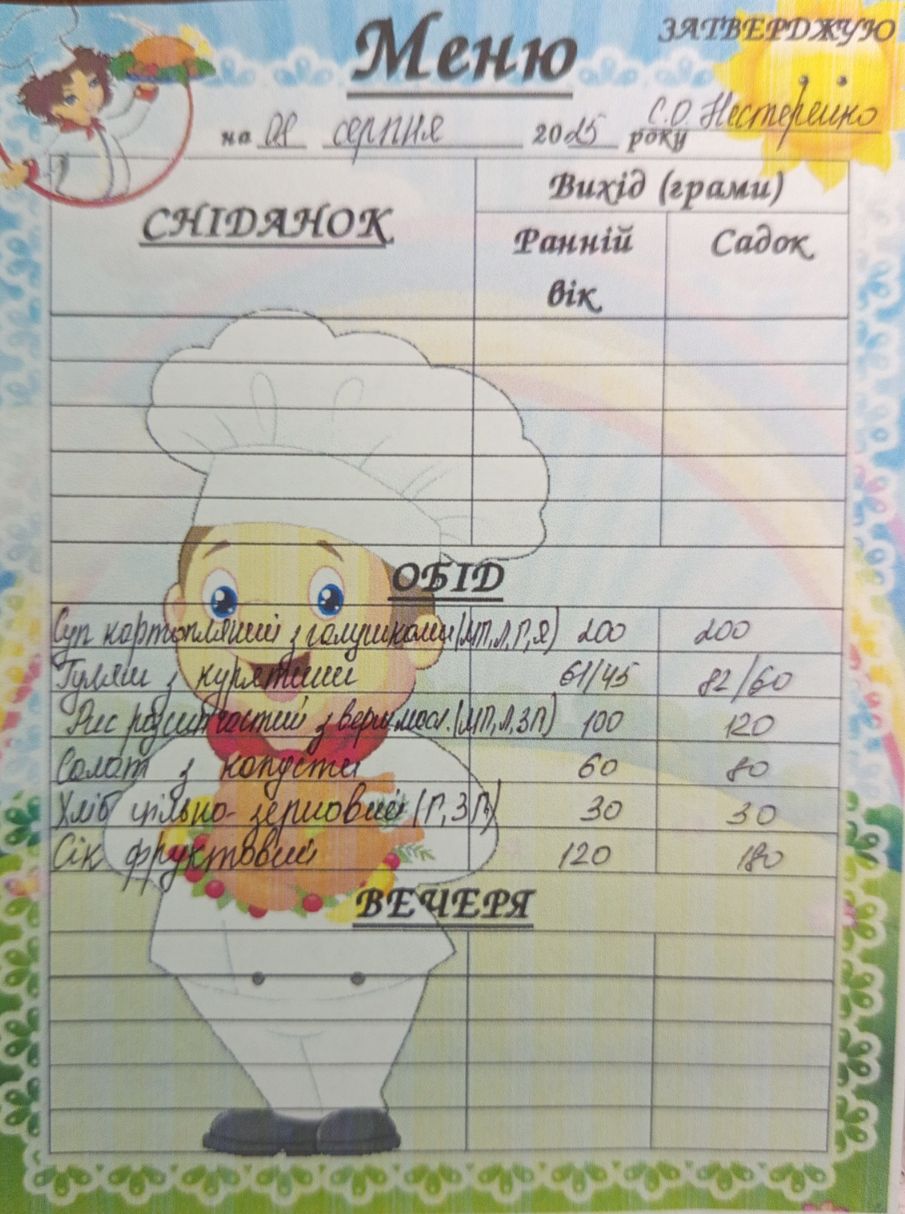 Меню
ЗАТВЕРДЖУЮ
на 08 серпня 2025 року С.О. Нестеренко
СНІДАНОК
Вихід (грами)
Ранній вік
Садок
ОБІД
Суп картопляний з галушками (МП,Л,Г,Я) 200 200
Гуляш з курятини 61/45 82/60
Рис розсипчастий з верш.масл. (МП,Л,ЗП) 100 120
Салат з капусти 60 80
Хліб цільно-зерновий (Г,ЗП) 30 30
Сік фруктовий 120 180
ВЕЧЕРЯ